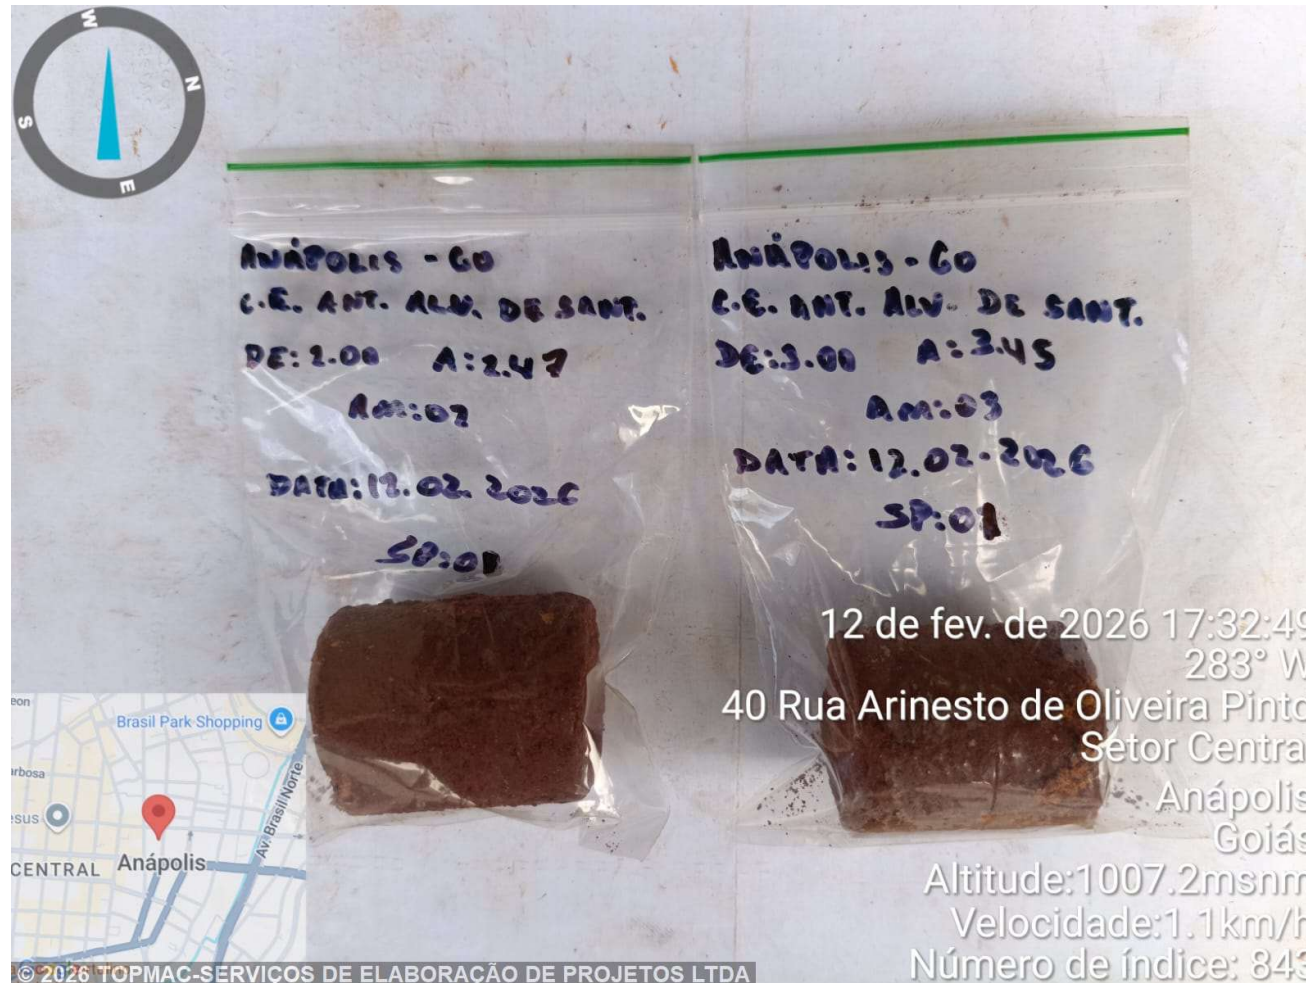 W
N
S
E
ANÁPOLIS - GO
C.E. ANT. ALV. DE SANT.
DE: 2.00 A: 2.47
AM: 02
DATA: 12.02.2026
SP: 01
ANÁPOLIS - GO
C.E. ANT. ALV. DE SANT.
DE: 3.00 A: 3.45
AM: 03
DATA: 12.02.2026
SP: 01
12 de fev. de 2026 17:32:49
283° W
40 Rua Arinesto de Oliveira Pinto
Setor Central
Anápolis
Goiás
Altitude:1007.2msnm
Velocidade:1.1km/h
Número de índice: 843
eon
Brasil Park Shopping
arbosa
esus
Av. Brasil Norte
CENTRAL
Anápolis
© 2026 TOPMAC-SERVIÇOS DE ELABORAÇÃO DE PROJETOS LTDA